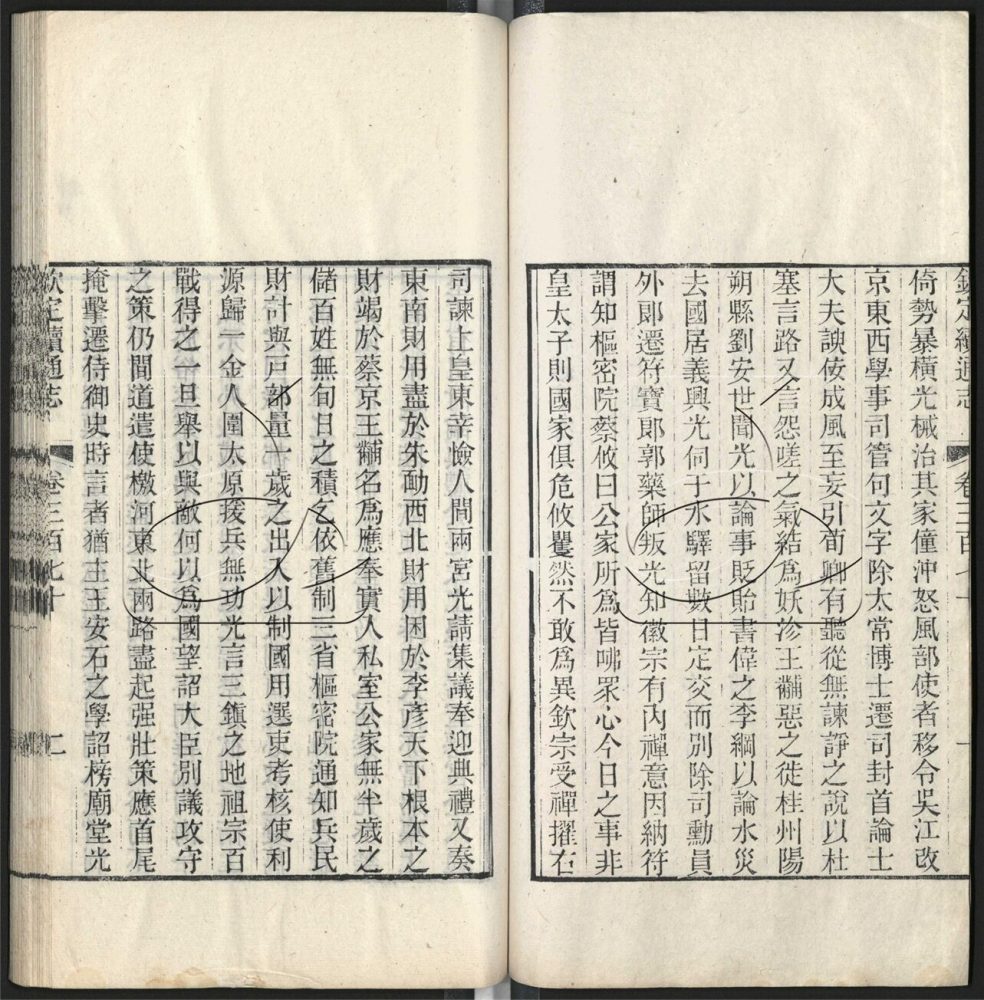 欽定續通志 卷三百七十 一
倚勢暴橫光械治其家僮沖怒風部使者移令吳江改
京東西學事司管句文字除太常博士遷司封首論士
大夫諛佞成風至妄引荀卿有聽從無諫諍之說以杜
塞言路又言怨嗟之氣結為妖沴王黼惡之徙桂州陽
朔縣劉安世聞光以論事貶貽書偉之李綱以論水災
去國居義興光伺于水驛留數日定交而別除司勳員
外郎遷符寶郎郭藥師叛光知徽宗有內禪意因納符
謂知樞密院蔡攸曰公家所為皆咈眾心今日之事非
皇太子則國家俱危攸矍然不敢為異欽宗受禪擢右
司諫上皇東幸憸人間兩宮光請集議奉迎典禮又奏
東南財用盡於朱勔西北財用困於李彥天下根本之
財竭於蔡京王黼名為應奉實入私室公家無半歲之
儲百姓無旬日之積乞依舊制三省樞密院通知兵民
財計與戶部量一歲之出入以制國用選吏考核使利
源歸一金人圍太原援兵無功光言三鎮之地祖宗百
戰得之一旦舉以與敵何以為國望詔大臣別議攻守
之策仍間道遣使檄河東北兩路盡起强壯策應首尾
掩擊遷侍御史時言者猶主王安石之學詔榜廟堂光
欽定續通志 卷三百七十 二